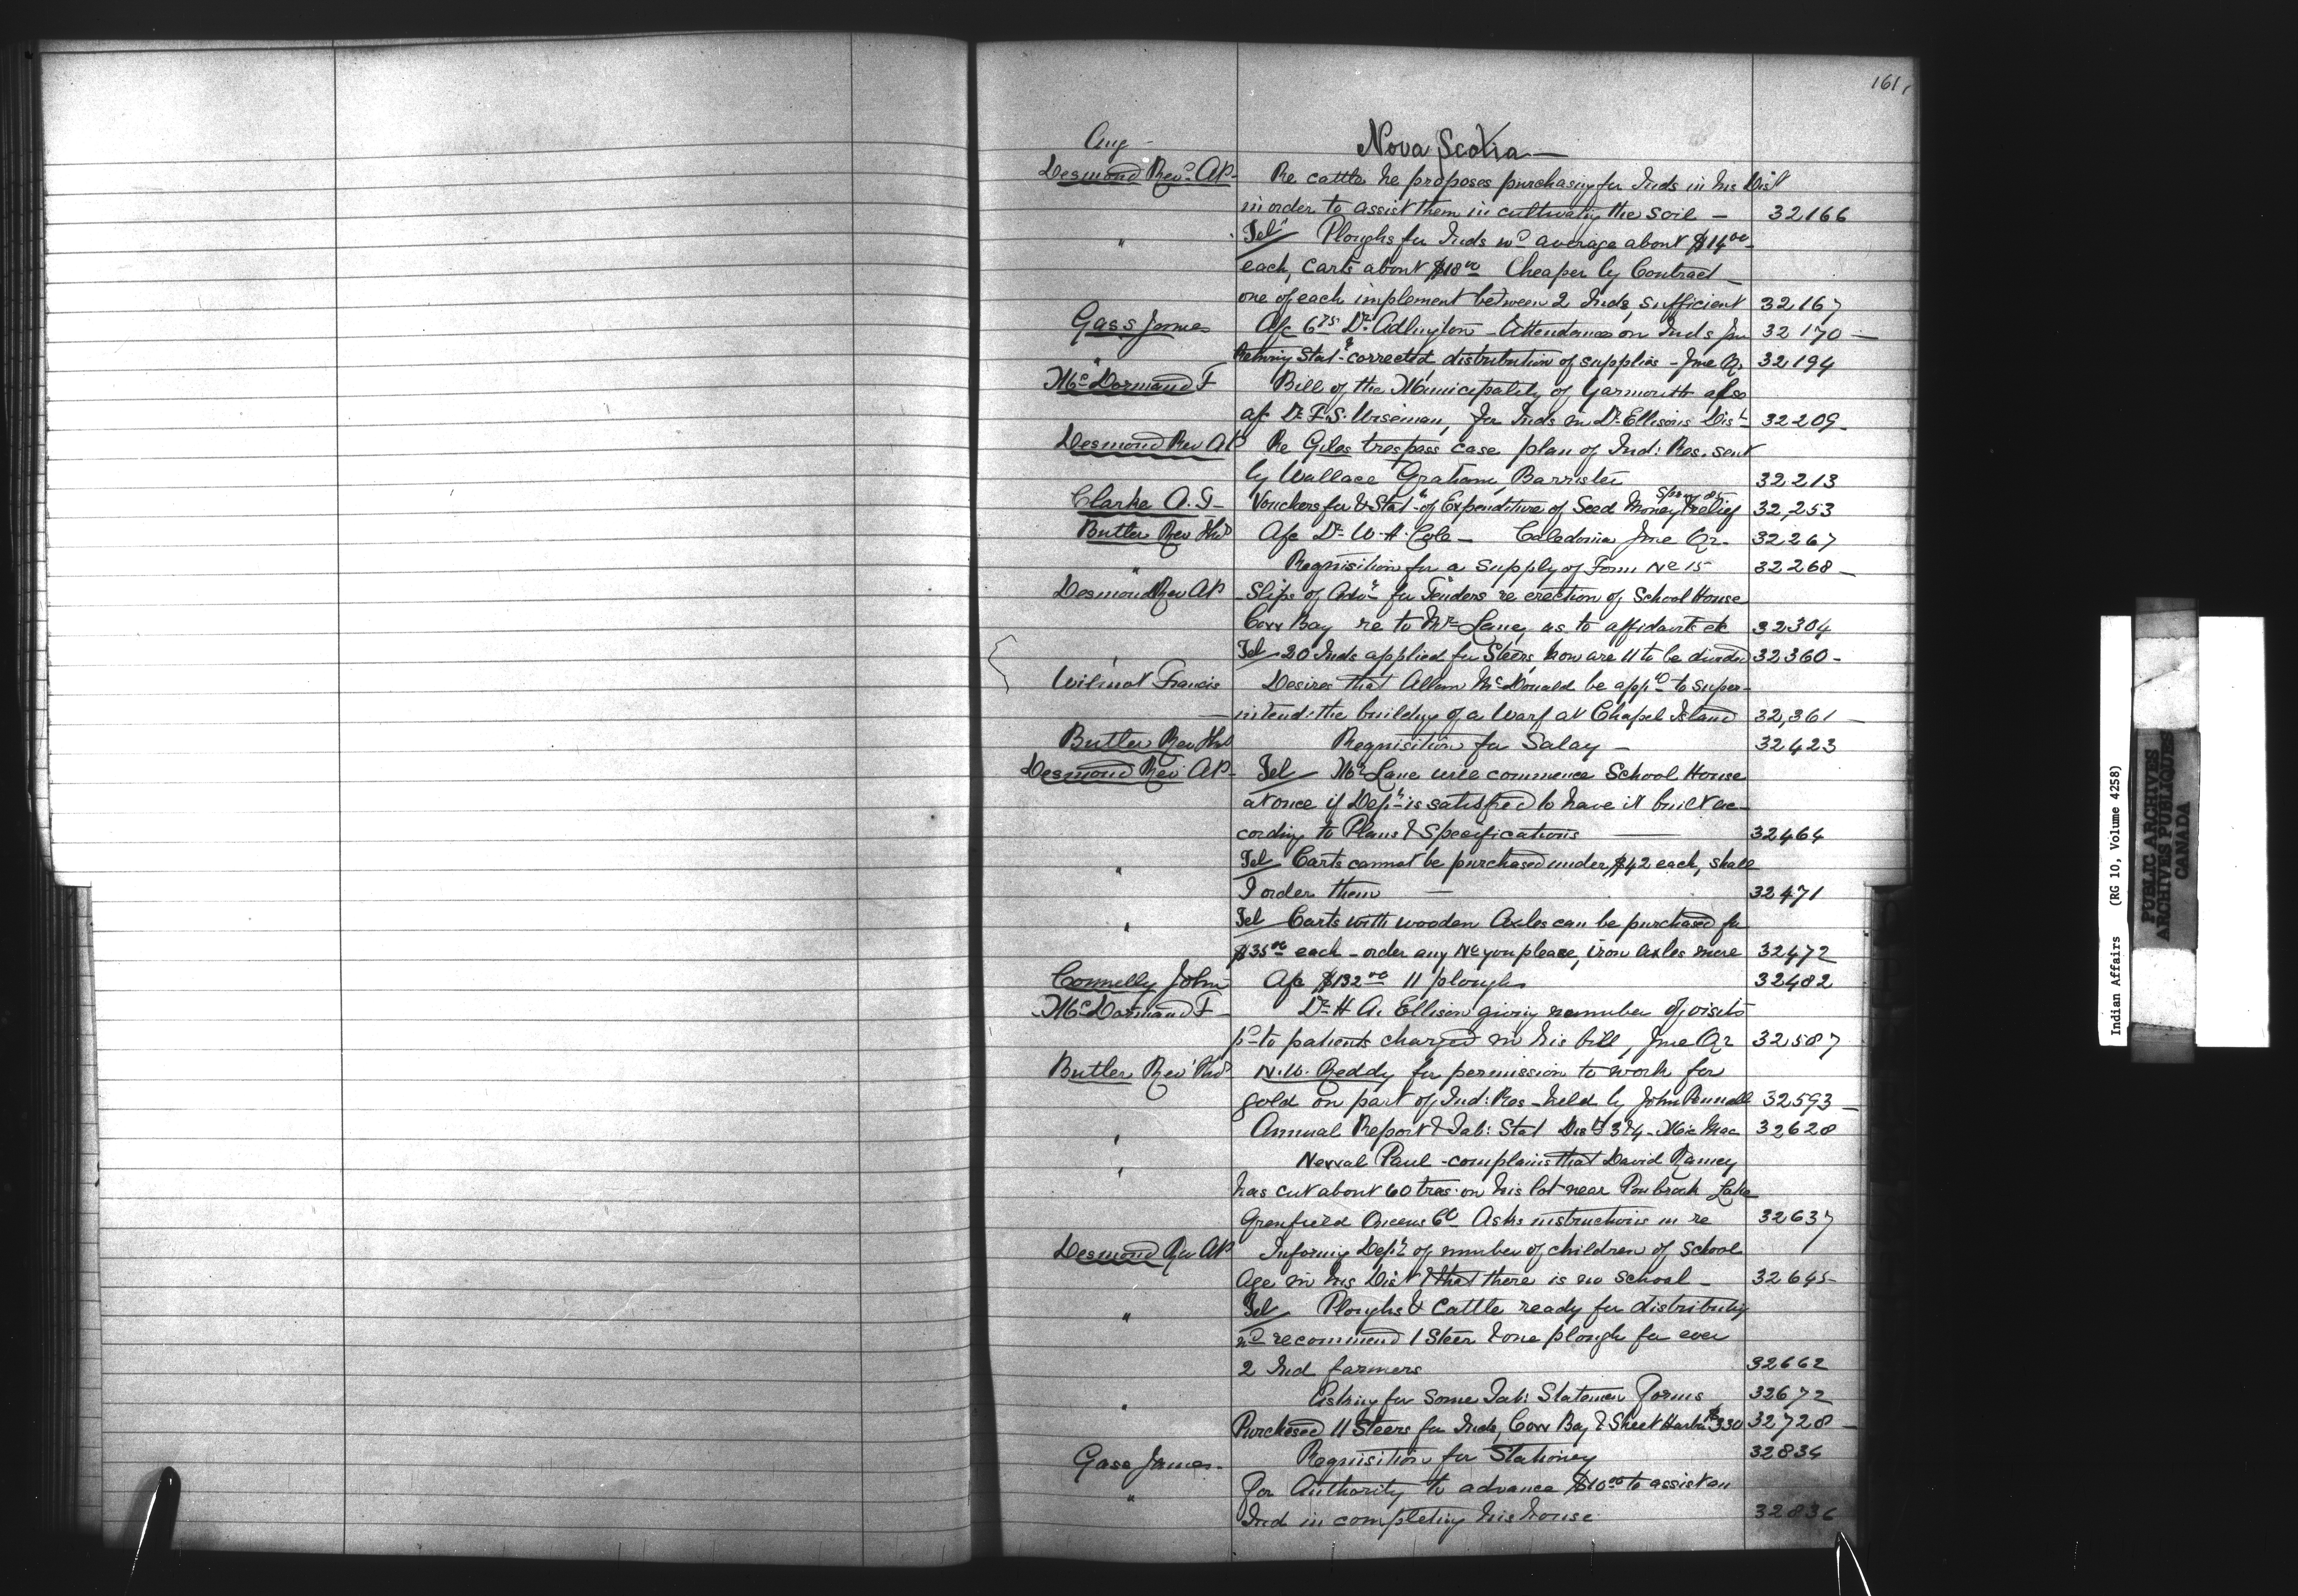 161,
Aug - Nova Scotia —
Desmond Revd AP- Re cattle he proposes purchasing for Inds in his Dist
in order to assist them in cultivatig the soil — 32166
" Tel Ploughs for Inds wd average about $14 00
each, carts about $18 00 Cheaper by Contract —
one of each implement between 2 Inds, sufficient 32167
Gass James A/c 6 75 Dr Adlington - Attendance on Inds Jun 32170 —
" Retring Statt corrected distribution of supplies - Jne Qr 32194
McDormand F Bill of the Municipality of Yarmouth also
a/c Dr F.S. Wiseman, for Inds in Dr Ellisons Dist 32209-
Desmond Rev AP Re Giles trespass case plan of Ind: Res. sent
by Wallace Graham, Barrister 32213
Clarke A.T- Vouchers for & Statt of Expenditure of Seed Money & relief Spring 85 32,253
Butler Rev Thos A/c Dr W.H. Cole — Caledonia Jne Qr- 32267
" Requisition for a supply of Form No 15 32268 —
Desmond Rev AP Slips of Advt for Tenders re erection of School House
Cow Bay re to Mr Lane, as to affidavits etc 32304
' Tel - 20 Inds applied for Steers, how are 11 to be divided 32360-
Wilmot Francis Desires that Allan McDonald be appd to super-
intend: the building of a Warf at Chapel Island 32,361 —
Butler Rev Thos Requisition for Salay — 32423
Desmond Rev AP- Tel — Mr Lane will commence School House
at once if Dept is satisfied to have it built ac-
cording to Plans & Specifications — 32464
" Tel Carts cannot be purchased under $42 each, shall
I order them — 32471
' Tel Carts with wooden Axles can be purchased for
$35 00 each - order any No you please, iron axles more 32472
Connelly John A/c $132 00 11 ploughs 32482
McDormand F - Dr H A. Ellison giving number of visits
pd to patients charged in his bill, Jne Qr 32587
Butler Rev Thos N.W. Reddy for permission to work for
gold on part of Ind: Res - held by John 32593 —
' Annual Report & Tab: Stat Dists 3 & 4 - Mic Mac 32628
' Paul - complains that David Ramey
has cut about 60 trees on his lot near Ponhook Lake
Greenfield Queens Co Asks instructions in re 32637
Desmond Rev AP Informig Dept of number of children of school
Age in his Dist & that there is no school — 32645-
" Tel Ploughs & Cattle ready for distributig
wd recommend 1 Steer & one plough for ever
2 Ind farmers 32662
' Asking for some Tab: Statemen Forms 32672
Purchased 11 Steers for Inds, Cow Bay & Sheet Harbr $330 32728 —
Gass James- Requisition for Stationey 32834
" For Authority to advance $10 00 to assist an
Ind in completing his house 32836
Indian Affairs (RG 10, Volume 4258)
PUBLIC ARCHIVES
ARCHIVES PUBLIQUES
CANADA